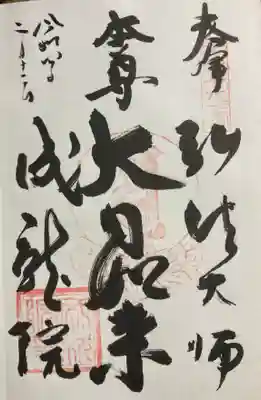 奉拝 弘法大師
本尊 大日如来
成就院
令和 年
二月十 日